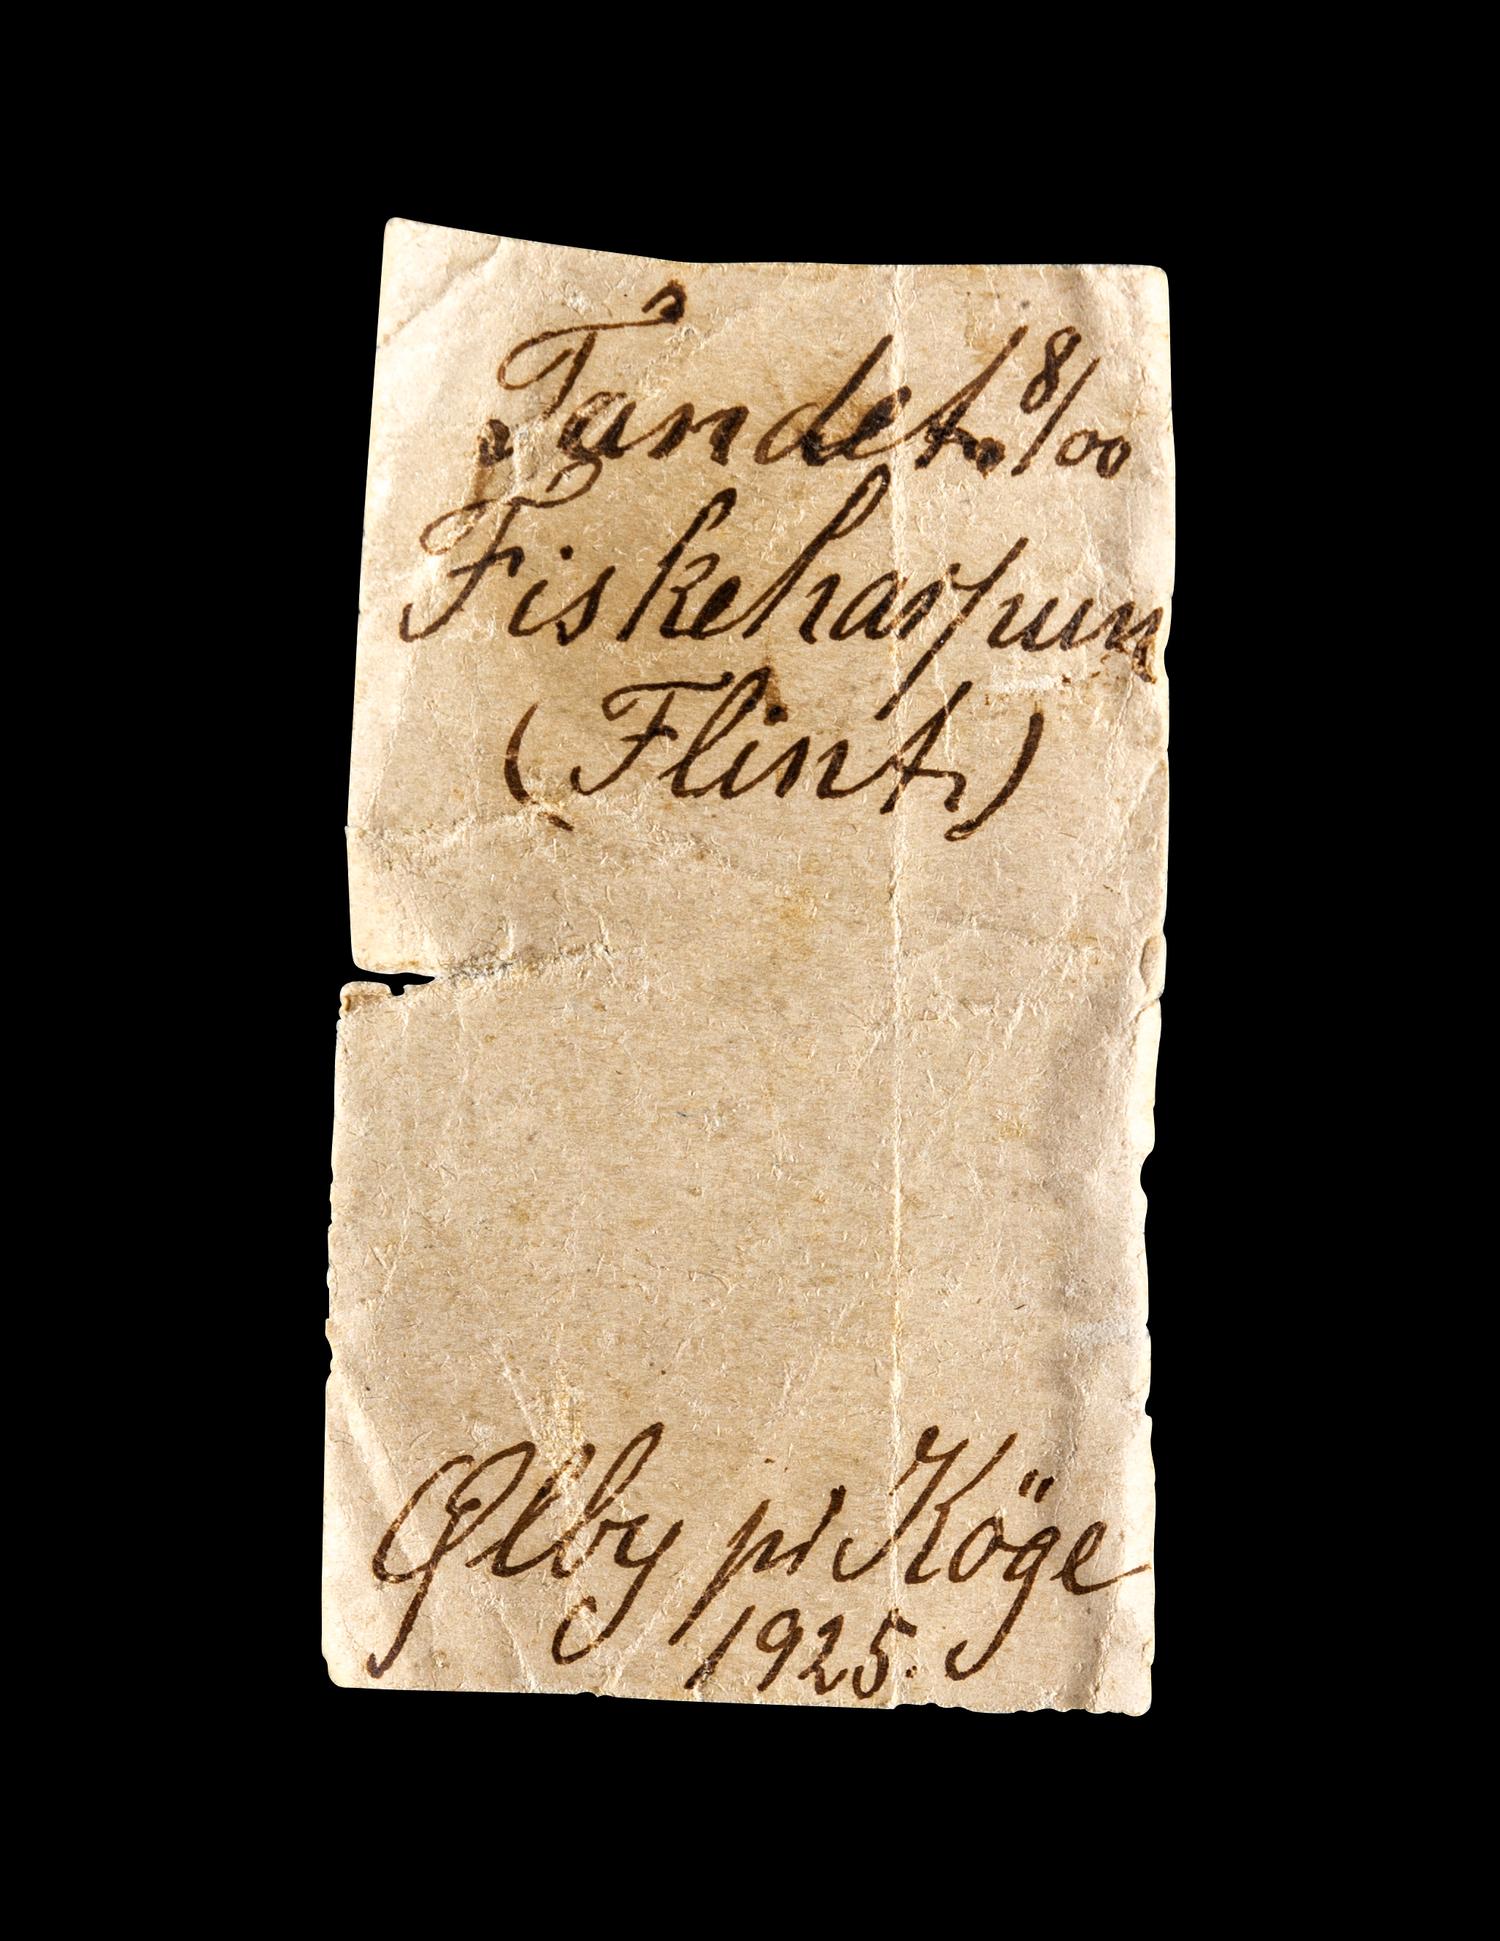 Tandet. 8/00
Fiskeharpun
(Flint)
Ølby pr Köge
1925.